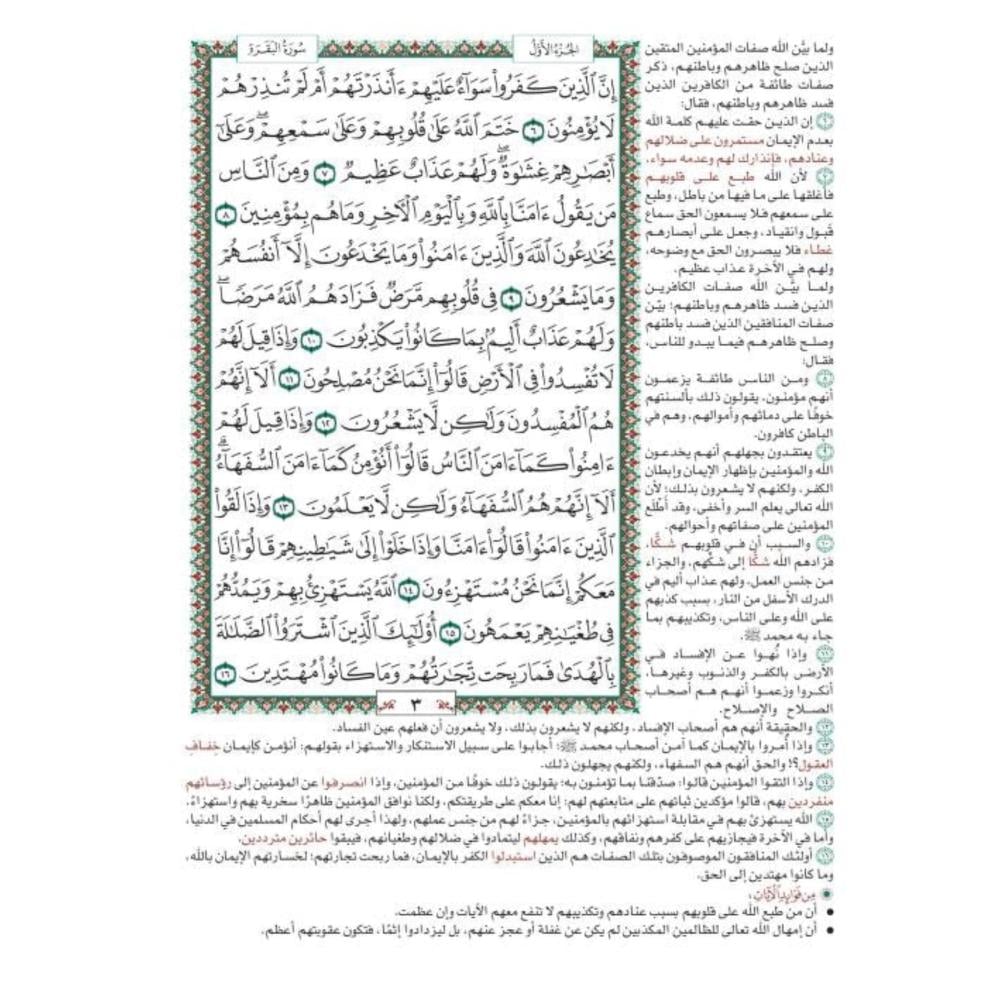 سُورَةُ البَقَرَةِ
الجُزْءُ الأَوَّلُ
إِنَّ ٱلَّذِينَ كَفَرُواْ سَوَآءٌ عَلَيْهِمْ ءَأَنذَرْتَهُمْ أَمْ لَمْ تُنذِرْهُمْ
لَا يُؤْمِنُونَ ٦ خَتَمَ ٱللَّهُ عَلَىٰ قُلُوبِهِمْ وَعَلَىٰ سَمْعِهِمْۖ وَعَلَىٰٓ
أَبْصَٰرِهِمْ غِشَٰوَةٌۖ وَلَهُمْ عَذَابٌ عَظِيمٌ ٧ وَمِنَ ٱلنَّاسِ
مَن يَقُولُ ءَامَنَّا بِٱللَّهِ وَبِٱلْيَوْمِ ٱلْأٓخِرِ وَمَا هُم بِمُؤْمِنِينَ ٨
يُخَٰدِعُونَ ٱللَّهَ وَٱلَّذِينَ ءَامَنُواْ وَمَا يَخْدَعُونَ إِلَّآ أَنفُسَهُمْ
وَمَا يَشْعُرُونَ ٩ فِي قُلُوبِهِم مَّرَضٌ فَزَادَهُمُ ٱللَّهُ مَرَضًاۖ
وَلَهُمْ عَذَابٌ أَلِيمٌۢ بِمَا كَانُواْ يَكْذِبُونَ ١٠ وَإِذَا قِيلَ لَهُمْ
لَا تُفْسِدُواْ فِي ٱلْأَرْضِ قَالُوٓاْ إِنَّمَا نَحْنُ مُصْلِحُونَ ١١ أَلَآ إِنَّهُمْ
هُمُ ٱلْمُفْسِدُونَ وَلَٰكِن لَّا يَشْعُرُونَ ١٢ وَإِذَا قِيلَ لَهُمْ
ءَامِنُواْ كَمَآ ءَامَنَ ٱلنَّاسُ قَالُوٓاْ أَنُؤْمِنُ كَمَآ ءَامَنَ ٱلسُّفَهَآءُۗ
أَلَآ إِنَّهُمْ هُمُ ٱلسُّفَهَآءُ وَلَٰكِن لَّا يَعْلَمُونَ ١٣ وَإِذَا لَقُواْ
ٱلَّذِينَ ءَامَنُواْ قَالُوٓاْ ءَامَنَّا وَإِذَا خَلَوْاْ إِلَىٰ شَيَٰطِينِهِمْ قَالُوٓاْ إِنَّا
مَعَكُمْ إِنَّمَا نَحْنُ مُسْتَهْزِءُونَ ١٤ ٱللَّهُ يَسْتَهْزِئُ بِهِمْ وَيَمُدُّهُمْ
فِي طُغْيَٰنِهِمْ يَعْمَهُونَ ١٥ أُوْلَٰٓئِكَ ٱلَّذِينَ ٱشْتَرَوُاْ ٱلضَّلَٰلَةَ
بِٱلْهُدَىٰ فَمَا رَبِحَت تِّجَٰرَتُهُمْ وَمَا كَانُواْ مُهْتَدِينَ ١٦
٣
ولما بيَّن الله صفات المؤمنين المتقين
الذين صلح ظاهرهم وباطنهم، ذكر
صفات طائفة من الكافرين الذين
فسد ظاهرهم وباطنهم، فقال:
٦ إن الذين حقت عليهم كلمة الله
بعدم الإيمان مستمرون على ضلالهم
وعنادهم، فإنذارك لهم وعدمه سواء،
٧ لأن الله طبع على قلوبهم
فأغلقها على ما فيها من باطل، وطبع
على سمعهم فلا يسمعون الحق سماع
قَبول وانقياد، وجعل على أبصارهم
غطاء فلا يبصرون الحق مع وضوحه،
ولهم في الآخرة عذاب عظيم.
ولما بيَّن الله صفات الكافرين
الذين فسد ظاهرهم وباطنهم؛ بيّن
صفات المنافقين الذين فسد باطنهم
وصلح ظاهرهم فيما يبدو للناس،
فقال:
٨ ومن الناس طائفة يزعمون
أنهم مؤمنون، يقولون ذلك بألسنتهم
خوفًا على دمائهم وأموالهم، وهم في
الباطن كافرون.
٩ يعتقدون بجهلهم أنهم يخدعون
الله والمؤمنين بإظهار الإيمان وإبطان
الكفر، ولكنهم لا يشعرون بذلك؛ لأن
الله تعالى يعلم السر وأخفى، وقد أَطْلَع
المؤمنين على صفاتهم وأحوالهم.
١٠ والسبب أن في قلوبهم شكًّا،
فزادهم الله شكًّا إلى شكّهم، والجزاء
من جنس العمل، ولهم عذاب أليم في
الدرك الأسفل من النار، بسبب كذبهم
على الله وعلى الناس، وتكذيبهم بما
جاء به محمد ﷺ.
١١ وإذا نُهوا عن الإفساد في
الأرض بالكفر والذنوب وغيرها،
أنكروا وزعموا أنهم هم أصحاب
الصلاح والإصلاح.
١٢ والحقيقة أنهم هم أصحاب الإفساد، ولكنهم لا يشعرون بذلك، ولا يشعرون أن فعلهم عين الفساد.
١٣ وإذا أُمروا بالإيمان كما آمن أصحاب محمد ﷺ؛ أجابوا على سبيل الاستنكار والاستهزاء بقولهم: أنؤمن كإيمان خِفافِ
العقول؟! والحق أنهم هم السفهاء، ولكنهم يجهلون ذلك.
١٤ وإذا التقوا المؤمنين قالوا: صدَّقنا بما تؤمنون به؛ يقولون ذلك خوفًا من المؤمنين، وإذا انصرفوا عن المؤمنين إلى رؤسائهم
منفردين بهم، قالوا مؤكدين ثباتهم على متابعتهم لهم: إنا معكم على طريقتكم، ولكنا نوافق المؤمنين ظاهرًا سخرية بهم واستهزاءً.
١٥ الله يستهزئ بهم في مقابلة استهزائهم بالمؤمنين، جزاءً لهم من جنس عملهم، ولهذا أجرى لهم أحكام المسلمين في الدنيا،
وأما في الآخرة فيجازيهم على كفرهم ونفاقهم، وكذلك يمهلهم ليتمادوا في ضلالهم وطغيانهم، فيبقوا حائرين مترددين.
١٦ أولئك المنافقون الموصوفون بتلك الصفات هم الذين استبدلوا الكفر بالإيمان، فما ربحت تجارتهم؛ لخسارتهم الإيمان بالله،
وما كانوا مهتدين إلى الحق.
مِن فَوَائِدِ الآيَاتِ:
• أن من طبع الله على قلوبهم بسبب عنادهم وتكذيبهم لا تنفع معهم الآيات وإن عظمت.
• أن إمهال الله تعالى للظالمين المكذبين لم يكن عن غفلة أو عجز عنهم، بل ليزدادوا إثمًا، فتكون عقوبتهم أعظم.